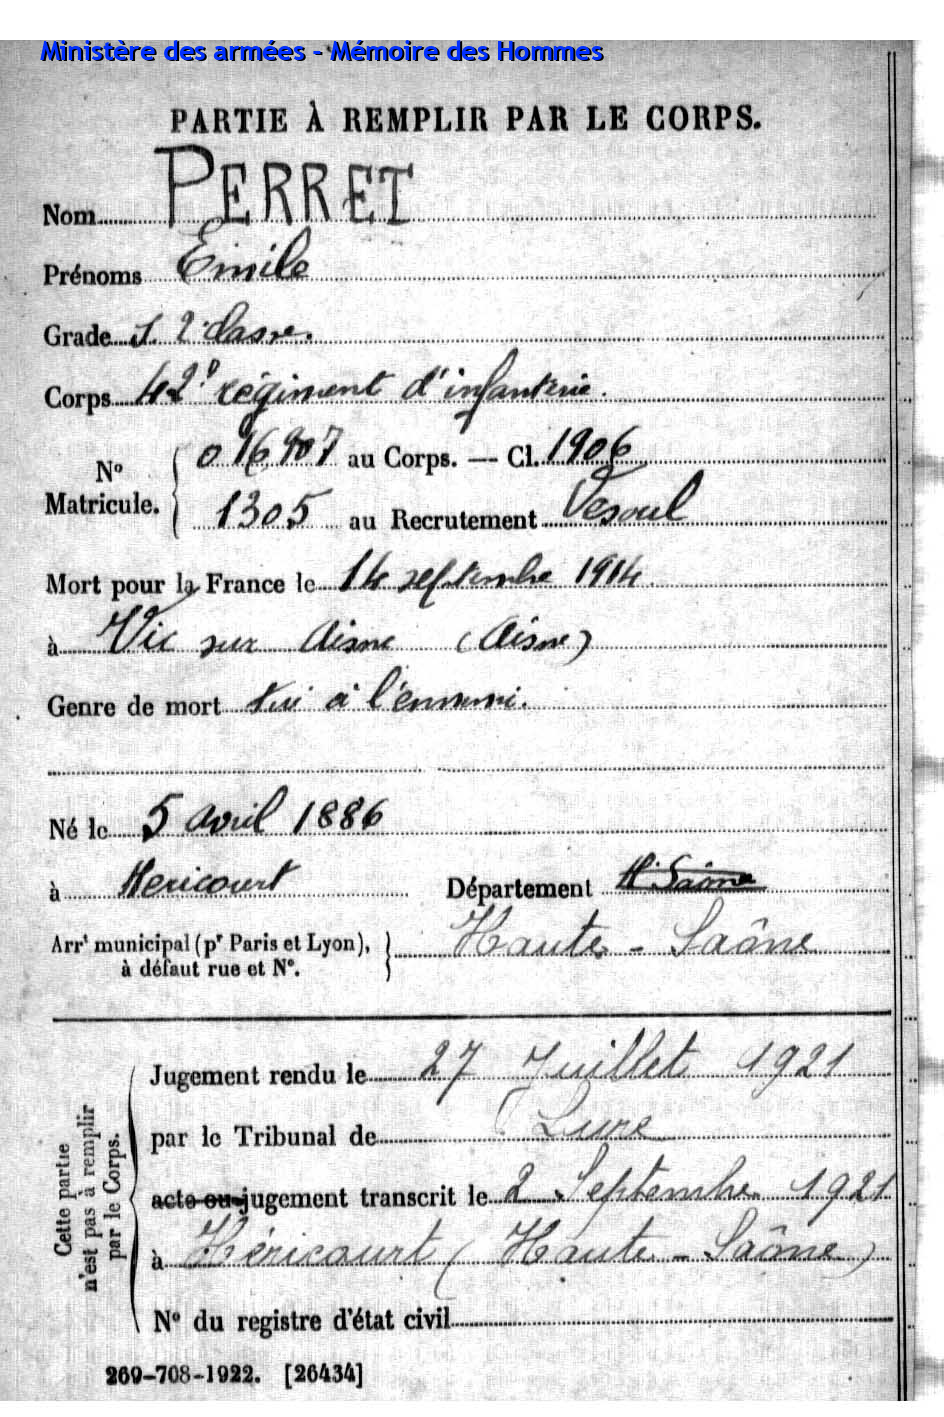 Ministère des armées - Mémoire des Hommes
PARTIE À REMPLIR PAR LE CORPS.
Nom PERRET
Prénoms Emile
Grade S. 2e classe.
Corps 42e régiment d'infanterie.
No Matricule. { 016907 au Corps. — Cl. 1906
1305 au Recrutement Vesoul
Mort pour la France le 14 septembre 1914
à Vic sur Aisne (Aisne)
Genre de mort tué à l'ennemi.
Né le 5 avril 1886
à Hericourt Département Hte Saône
Arrt municipal (pr Paris et Lyon), à défaut rue et No. } Haute-Saône
Cette partie n'est pas à remplir par le Corps.
Jugement rendu le 27 Juillet 1921
par le Tribunal de Lure
acte ou jugement transcrit le 2 Septembre 1921
à Héricourt (Haute-Saône)
No du registre d'état civil
269-708-1922. [26434]